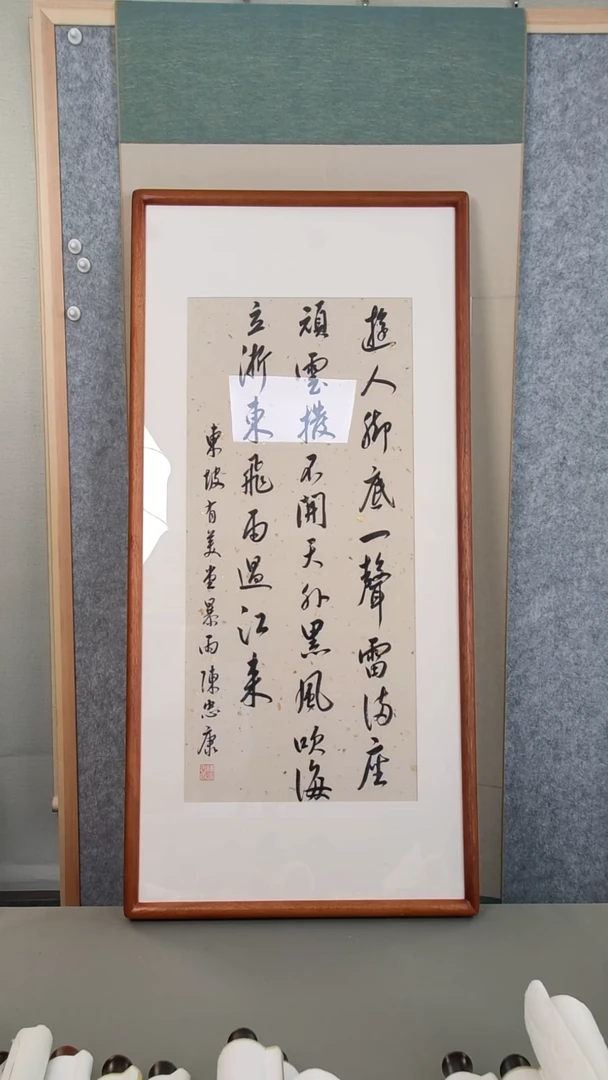 遊人腳底一聲雷滿座
頑雲撥不開天外黑風吹海
立浙東飛雨過江來
東坡有美堂暴雨 陳忠康